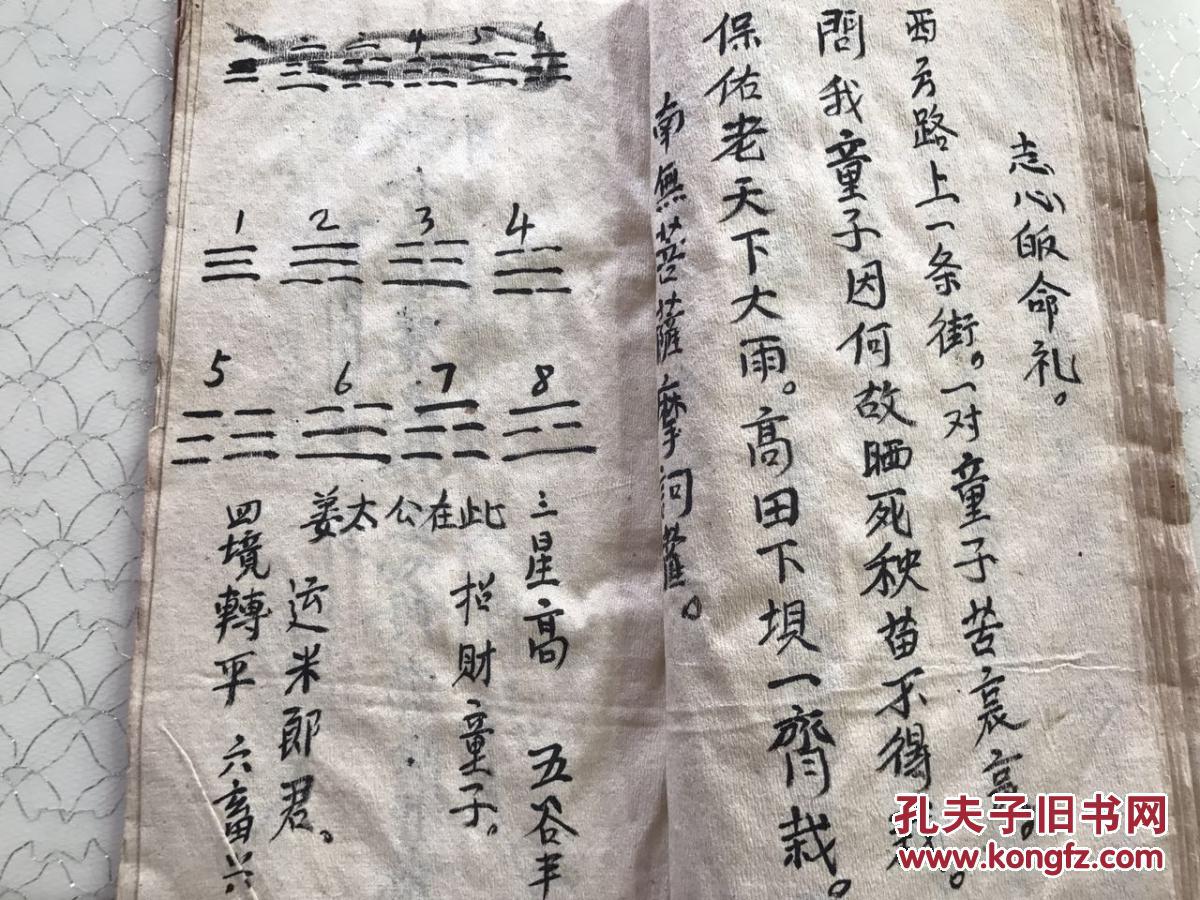 志心皈命礼。
西方路上一条街。一对童子苦哀哀。
問我童子因何故晒死秧苗不得栽。
保佑老天下大雨。高田下垻一齊栽。
南無菩薩摩訶薩。
4 5 6
1 2 3 4
5 6 7 8
姜太公在此
三星高 五谷丰
招財童子。
运米郎君。
四境轉平 六畜兴
孔夫子旧书网
www.kongfz.com